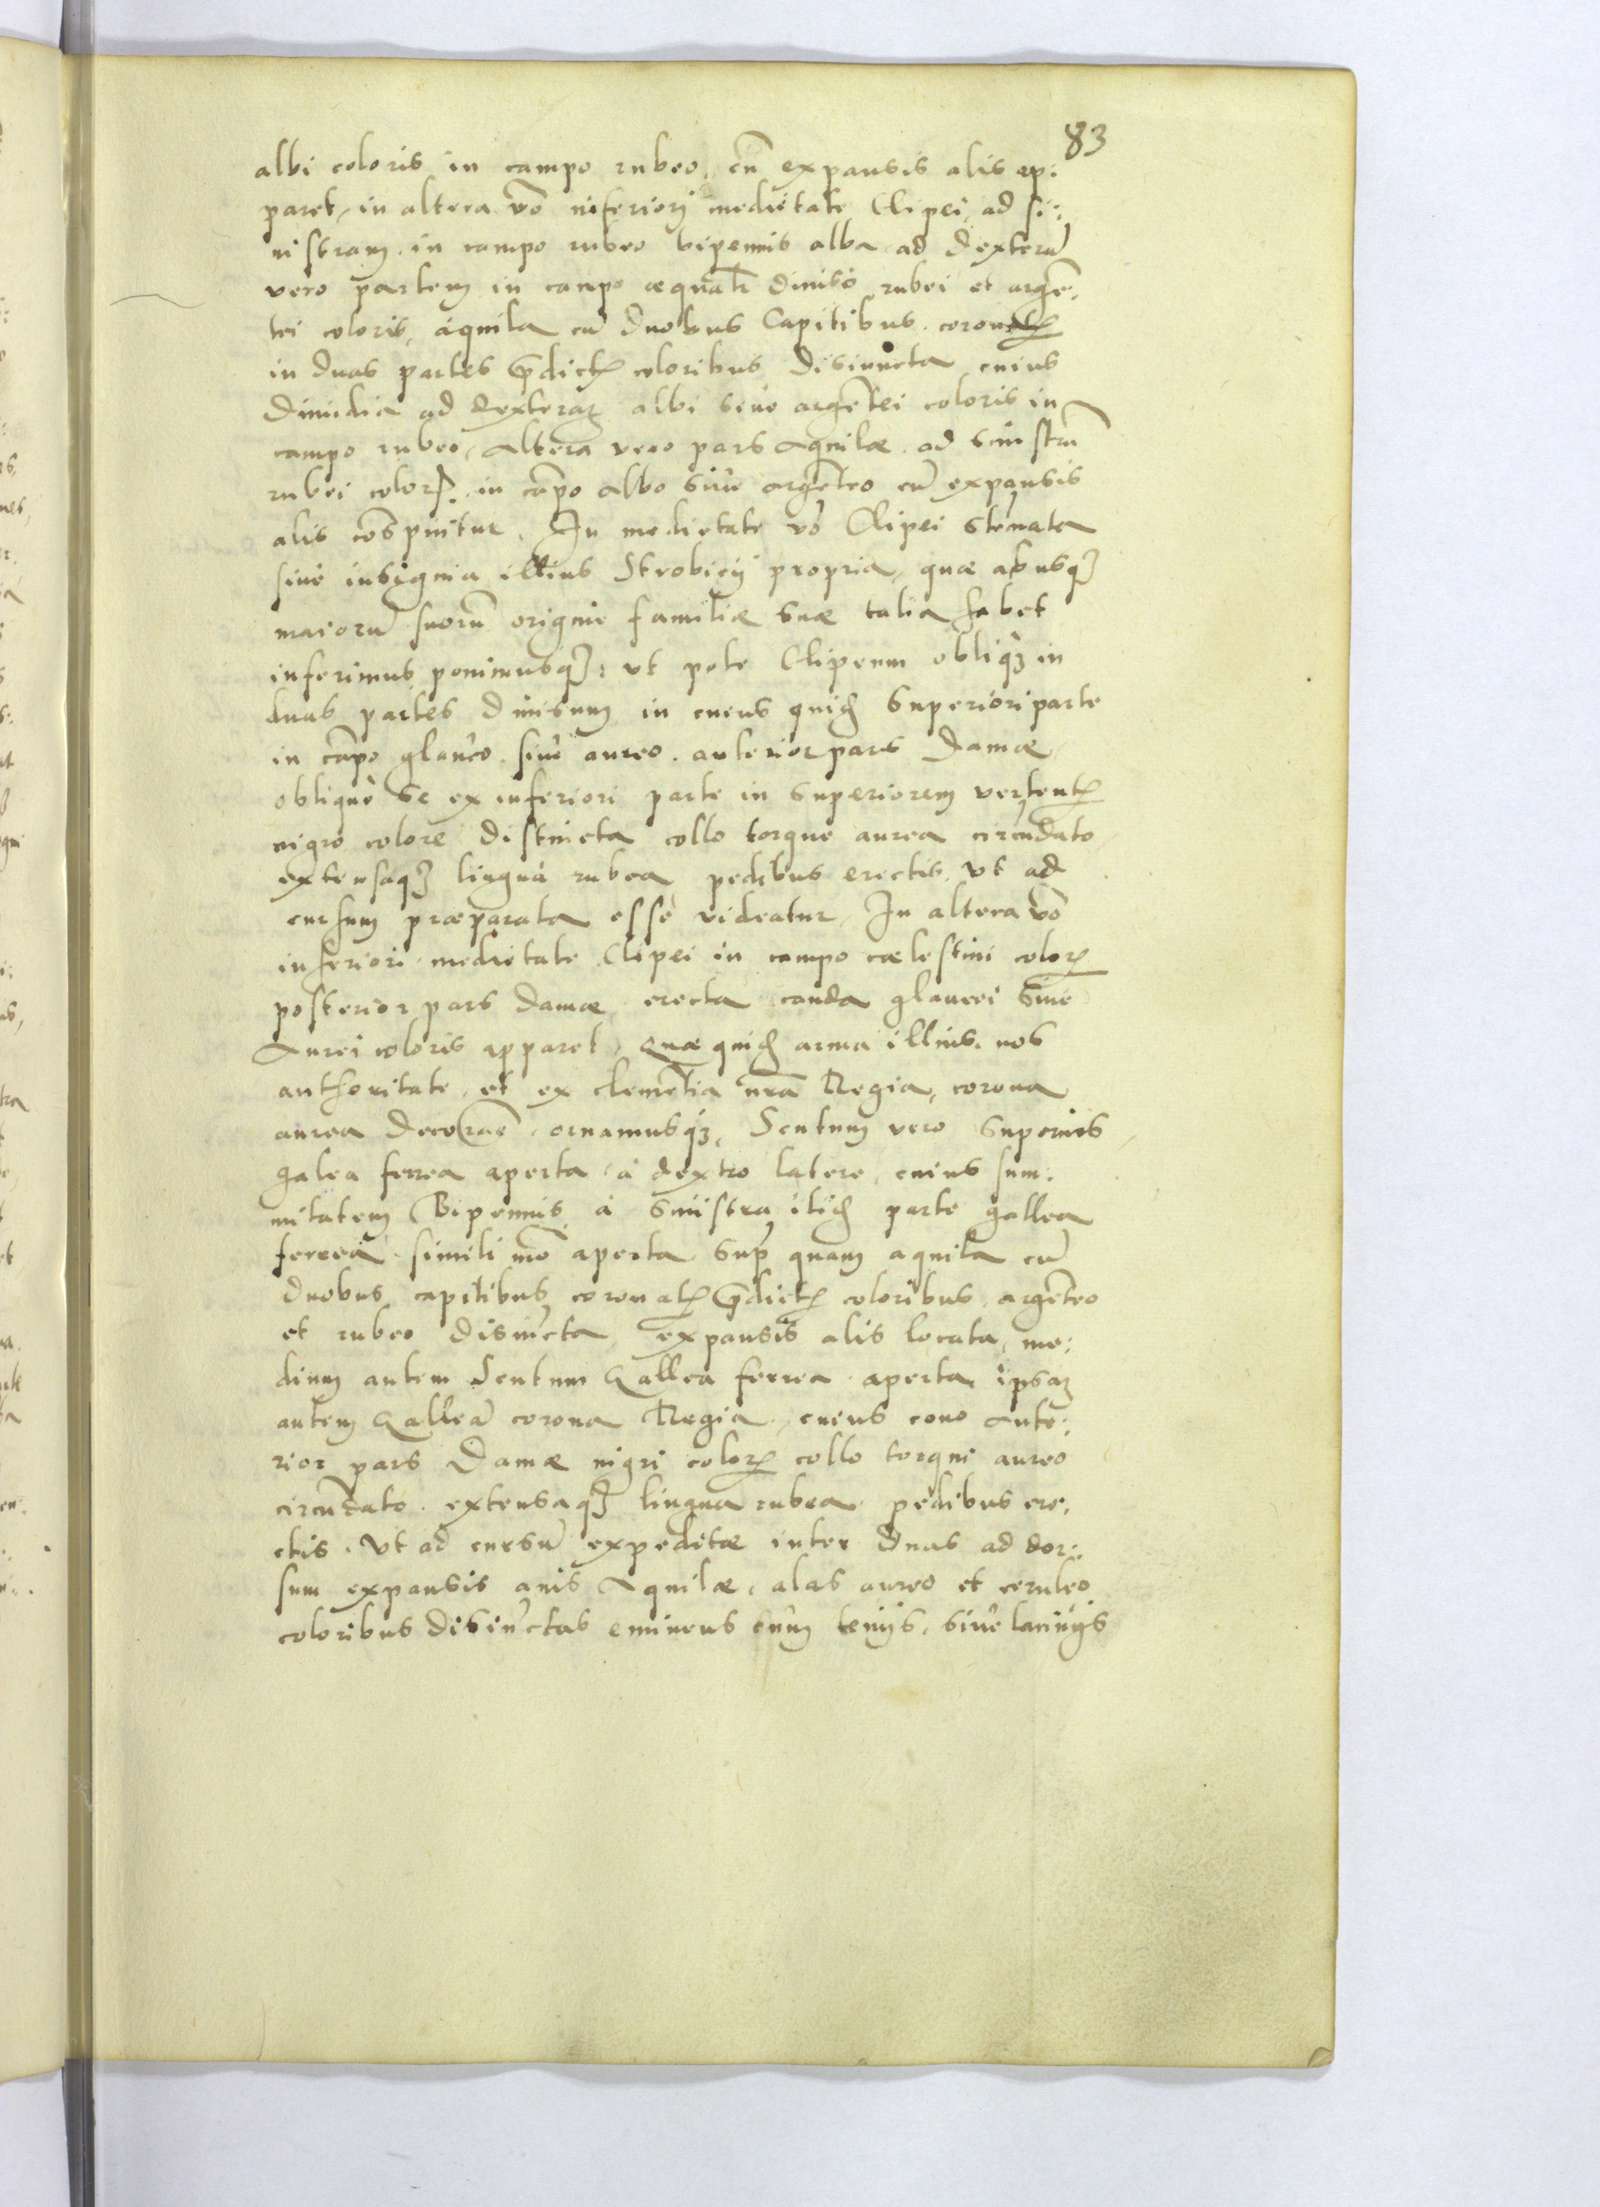 83
albi coloris in campo rubeo, cũ expansis alis ap:
paret, in altera võ inferiori medietate Clipei, ad si:
nistram in campo rubeo bipennis alba ad dexterã
vero partem in campo æqualr̃ diuiso rubei et argẽ:
tei coloris, aquila cũ duobus Capitibus coronatis
in duas partes p̃dictis coloribus disiuncta cuius
dimidia ad dexteraʒ albi siue argẽtei coloris in
campo rubeo, altera vero pars aquilæ ad sinistrã
rubei coloris, in cãpo albo siue argẽteo cũ expansis
alis cõspicitur. In medietate võ Clipei stẽmata
siue insignia illius Strobicij propria, quæ abusqʒ
maiorũ suorũ origine familiæ suæ talia habet
inferimus ponimusqʒ: vt pote Clipeum obliqʒ in
duas partes diuisum in cuius quid̃ superiori parte
in cãpo glauco siue aureo anterior pars Damæ
oblique se ex inferiori parte in superiorem vertentis
nigro colore distincta collo torque aurea circũdato
extensaqʒ lingua rubea pedibus erectis, vt ad
cursum præparata esse videatur, In altera võ
inferiori medietate Clipei in campo cælestini coloris
posterior pars damæ erecta cauda glauci siue
Aurei coloris apparet, Quæ quid̃ arma illius nos
authoritate et ex clemẽtia nr̃a Regia, corona
aurea decoram̃ ornamusqʒ, Scutum vero superius
galea ferrea aperta à dextro latere, cuius sum:
mitatem Bipennis à sinistra itid̃ parte gallea
ferrea simili mõ aperta sup̃ quam aquila cũ
duobus capitibus coronatis p̃dictis coloribus argẽteo
et rubeo disiũcta expansis alis locata, me:
dium autem Scutum Gallea ferrea aperta ipsaʒ
autem Galleã corona Regia, cuius cono ante:
rior pars Damæ nigri coloris collo torqui aureo
circũdato extensaqʒ lingua rubea pedibus ere:
ctis, vt ad cursũ expeditæ inter duas ad dor:
sum expansis auis Aquilæ, alas aureo et ceruleo
coloribus disiũctas eminens cum tenijs, siue lacinijs